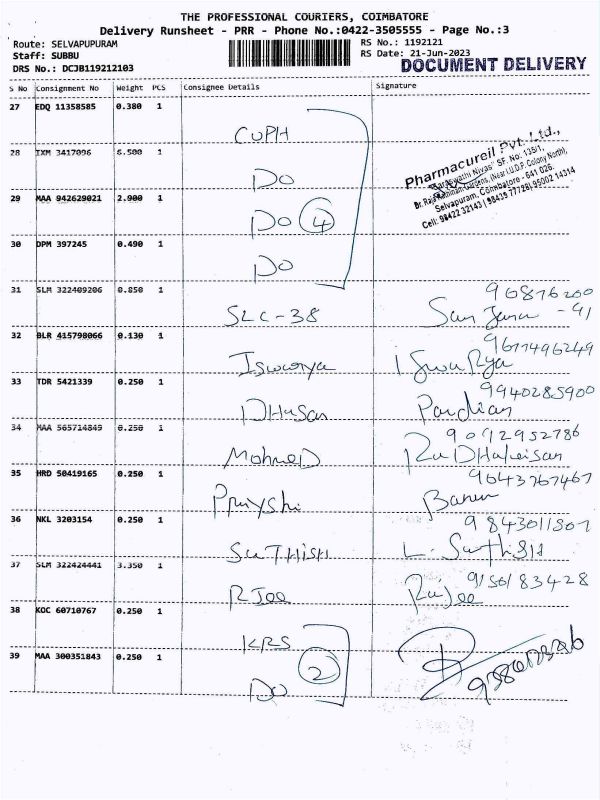 THE PROFESSIONAL COURIERS, COIMBATORE
Delivery Runsheet - PRR - Phone No.:0422-3505555 - Page No.:3
Route: SELVAPUPURAM
RS No.: 1192121
Staff: SUBBU
RS Date: 21-Jun-2023
DRS No.: DCJB119212103
DOCUMENT DELIVERY
S No Consignment No Weight PCS Consignee Details Signature
27 EDQ 11358585 0.380 1
CUPH
28 IXM 3417096 6.500 1
DO
Pharmacureil Pvt. Ltd.,
Selvapuram, Coimbatore - 641 026.
Cell: 98422 32143 | 98435 77728| 95002 14314
29 MAA 942629021 2.900 1
DO 4
30 DPM 397245 0.490 1
DO
31 SLM 322409206 0.850 1
SLC-38
32 BLR 415798066 0.130 1
Iswarya
9677496249
33 TDR 5421339 0.250 1
9940285900
Pandian
34 MAA 565714849 0.250 1
MohmeD
9092952786
35 HRD 50419165 0.250 1
9643767467
36 NKL 3203154 0.250 1
SuTHISH
9843011807
37 SLM 322424441 3.350 1
RJee
9150183428
Rajee
38 KOC 60710767 0.250 1
KRS
39 MAA 300351843 0.250 1
2
DO